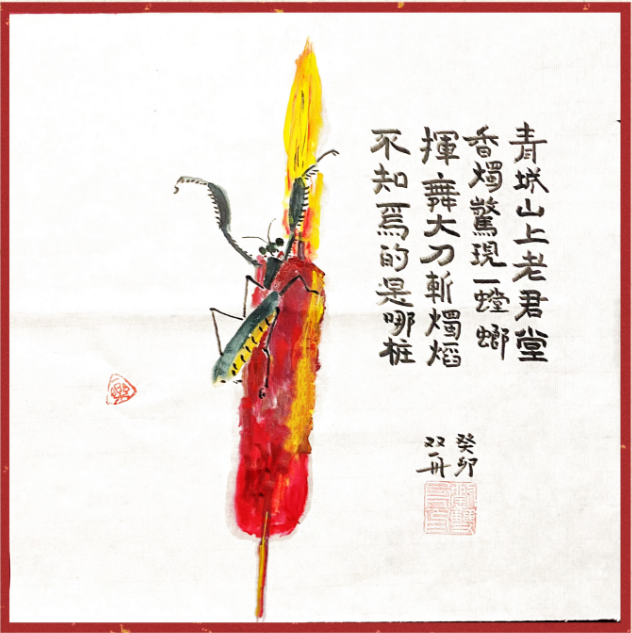 青城山上老君堂
香燭驚現一螳螂
揮舞大刀斬燭焰
不知爲的是哪桩
癸卯
双舟